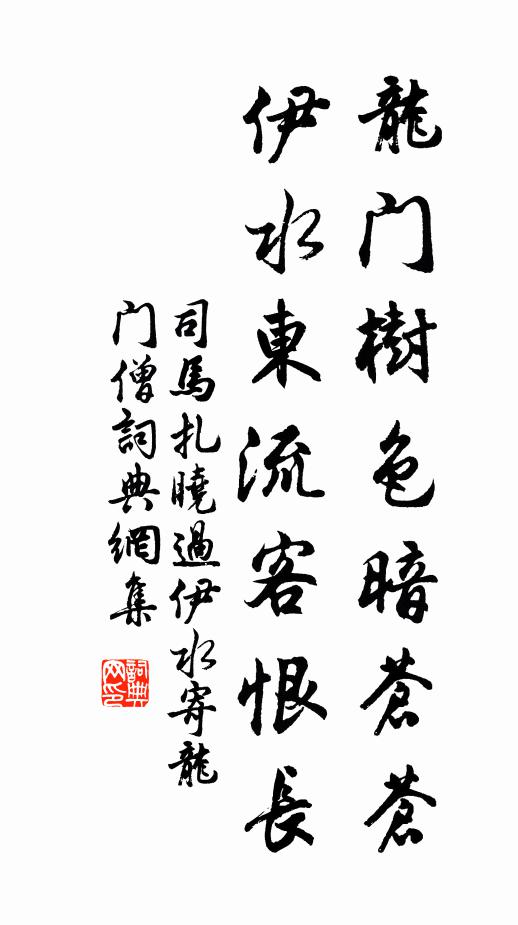 龍门樹色暗蒼蒼
伊水東流客恨長
司馬扎曉過伊水寄龍
门僧詞典網集
詞典
网印